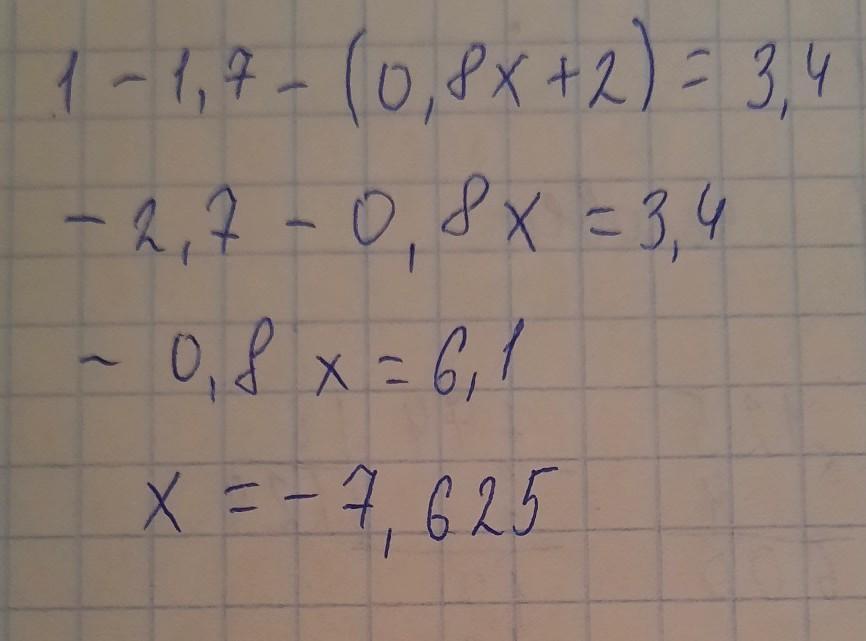 1 - 1,7 - (0,8x + 2) = 3,4
- 2,7 - 0,8x = 3,4
- 0,8 x = 6,1
x = - 7,625